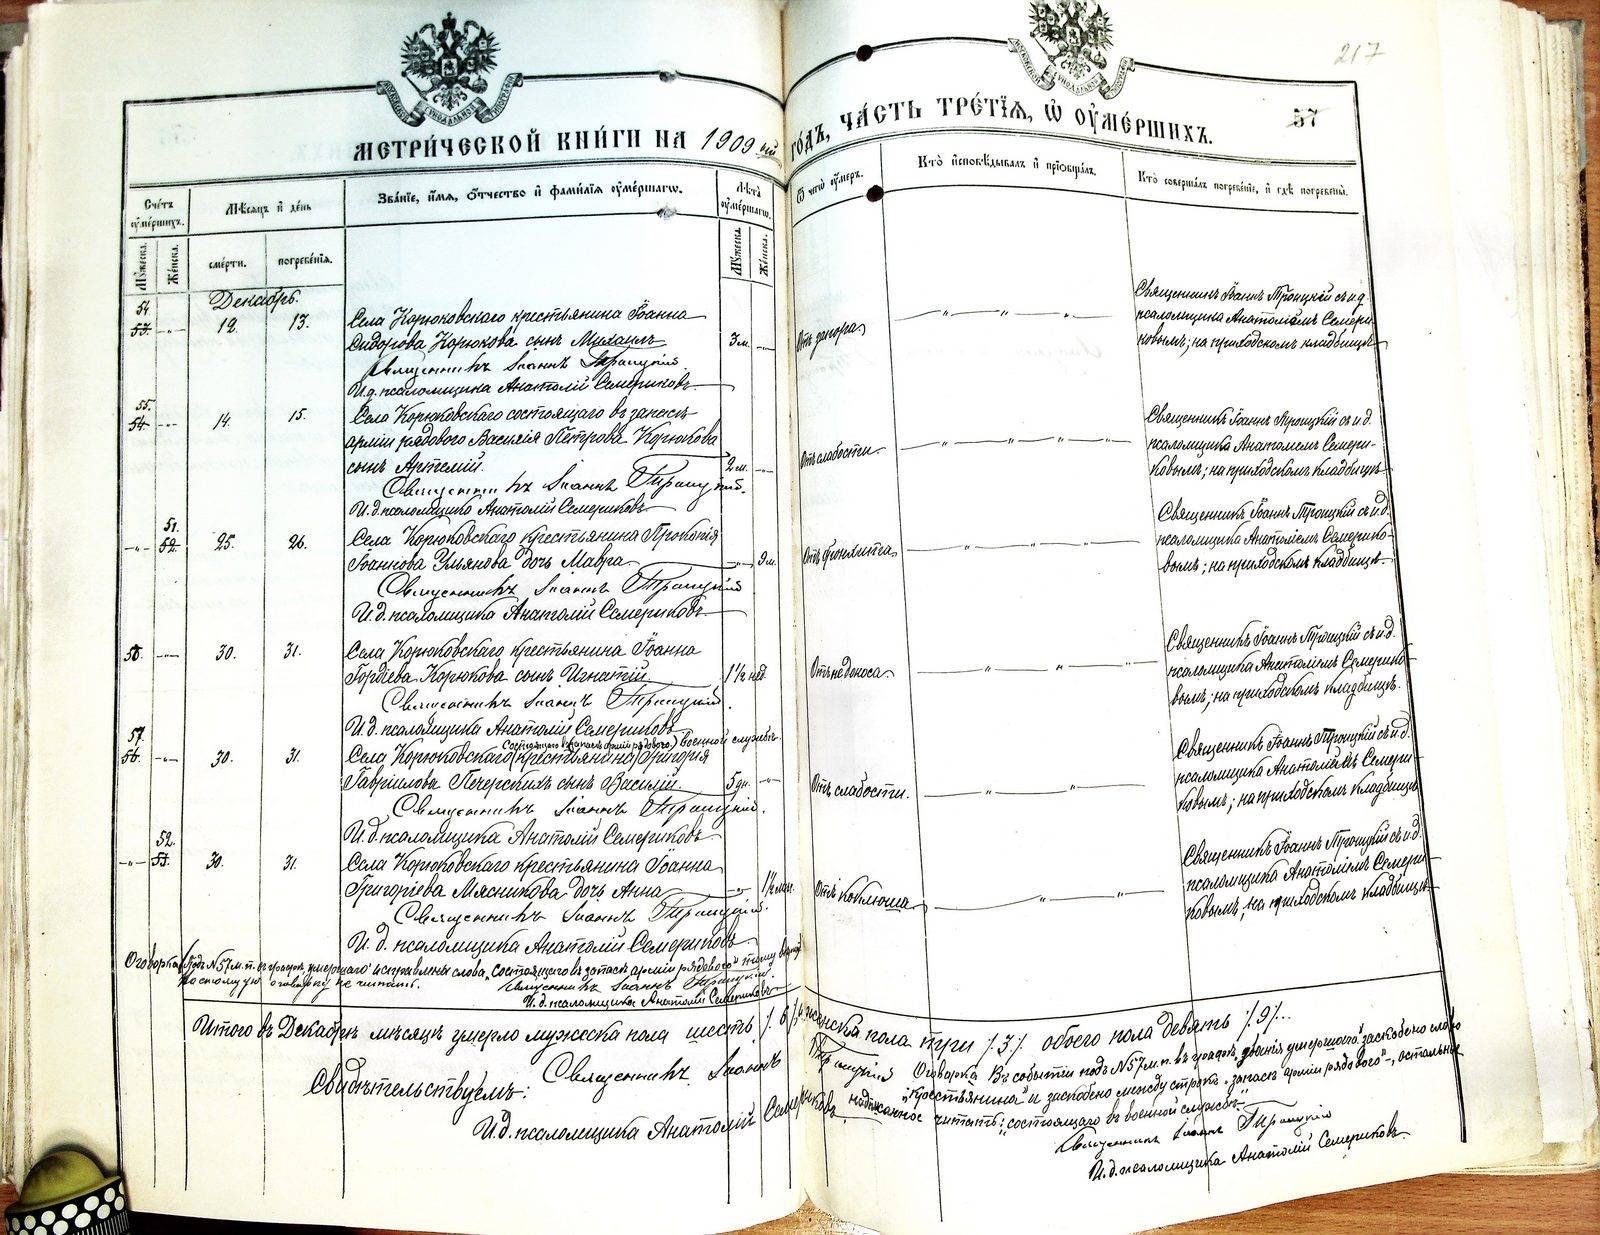 217
МЕТРИ́ЧЕСКОЙ КНИ́ГИ НА 1909 ый
ГО́ДЪ, ЧА́СТЬ ТРЕ́ТЇЯ, Ѡ҆ ОУ҆МЕ́РШИХЪ.
57
Сче́тъ оу҆ме́ршихъ.
Мѣ́сяцъ и҆ де́нь
Зва́нїе, и҆́мя, ѻ҆́тчество и҆ фами́лїя оу҆ме́ршагѡ.
Лѣ́та оу҆ме́ршагѡ.
Ѿ чегѡ̀ оу҆́меръ.
Кто̀ и҆сповѣ́дывалъ и҆ прїѡбща́лъ.
Кто̀ соверша́лъ погребе́нїе, и҆ гдѣ̀ погребены̀.
Му́жеска.
Же́нска.
сме́рти.
погребе́нїя.
Му́жеска.
Же́нска.
Декабрь.
54.
53. -"- 12. 13. Села Корюковскаго крестьянина Іоанна
Сидорова Корюкова сынъ Михаилъ 3 м. -"-
Священникъ Іоаннъ Троицкій.
И.д. псаломщика Анатолій Семериковъ.
Священникъ Іоаннъ Троицкій съ и.д.
псаломщика Анатоліемъ Семери-
ковымъ; на приходскомъ кладбищѣ
55.
54. -"- 14. 15. Села Корюковскаго состоящаго въ запасѣ
арміи рядового Василія Петрова Корюкова
сынъ Артемій. 2 м. -"- Отъ слабости.
Священникъ Іоаннъ Троицкій.
И.д. псаломщика Анатолій Семериковъ
Священникъ Іоаннъ Троицкій съ и.д.
псаломщика Анатоліемъ Семери-
ковымъ; на приходскомъ кладбищѣ
51.
-"- 52. 25. 26. Села Корюковскаго крестьянина Прокопія
Іоаннова Ульянова дочь Мавра -"- 9 м.
Священникъ Іоаннъ Троицкій
И.д. псаломщика Анатолій Семериковъ.
Священникъ Іоаннъ Троицкій съ и.д.
псаломщика Анатоліемъ Семерико-
вымъ; на приходскомъ кладбищѣ.
-"- 30. 31. Села Корюковскаго крестьянина Іоанна
Гордѣева Корюкова сынъ Игнатій 1 ½ нед. Отъ недоноса
Священникъ Іоаннъ Троицкій.
И.д. псаломщика Анатолій Семериковъ
Священникъ Іоаннъ Троицкій съ и.д.
псаломщика Анатоліемъ Семерико-
вымъ; на приходскомъ кладбищѣ.
57.
состоящаго въ запасѣ арміи рядового военной службѣ
56. -"- 30. 31. Села Корюковскаго крестьянина Григорія
Гавріилова Печерскихъ сынъ Василій. 5 дн. -"- Отъ слабости.
Священникъ Іоаннъ Троицкій.
И.д. псаломщика Анатолій Семериковъ
Священникъ Іоаннъ Троицкій съ и.д.
псаломщика Анатоліемъ Семери-
ковымъ; на приходскомъ кладбищѣ
52.
-"- 53. 30. 31. Села Корюковскаго крестьянина Іоанна
Григоріева Мясникова дочь Анна -"- Отъ коклюша
Священникъ Іоаннъ Троицкій.
И.д. псаломщика Анатолій Семериковъ.
Священникъ Іоаннъ Троицкій съ и.д.
псаломщика Анатоліемъ Семери-
ковымъ, на приходскомъ кладбищѣ
Оговорка: Подъ №57 м.п. въ графѣ „умершаго" исправлены слова „состоящаго въ запасѣ арміи рядового"
посему оговорку не читать. Священникъ Іоаннъ Троицкій.
И.д. псаломщика Анатолій Семериковъ
Итого въ Декабрѣ мѣсяцѣ умерло мужеска пола шесть /6/, женска пола три /3/ обоего пола девять /9/.
Свидѣтельствуемъ: Священникъ Іоаннъ Троицкій
И.д. псаломщика Анатолій Семериковъ
Оговорка Въ событіи подъ №57 м.п. въ графѣ „званія умершаго" заскоблено слово
„крестьянина" и заскоблено между строкъ „запасѣ арміи рядового" -, остальное
надписанное читать: „состоящаго въ военной службѣ".
Священникъ Іоаннъ Троицкій
И.д. псаломщика Анатолій Семериковъ.